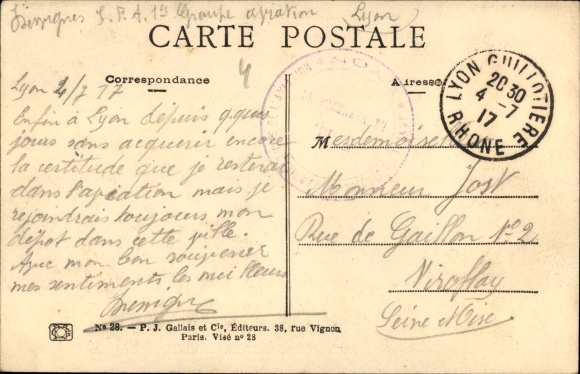 S. F. A. 1er Groupe aviation Lyon
CARTE POSTALE
Correspondance
Adresse
4
LYON GUILLOTIERE
20 30
4 - 7
17
RHONE
Lyon 4/7 17
Enfin à Lyon depuis q.ques
jours sans acquerir encore
la certitude que je resterai
dans l'aviation mais je
rejoindrais toujours mon
dépot dans cette ville.
Avec mon bon souvenir
mes sentiments les meilleurs
Mesdemoiselles
Monsieur Jost
Rue de Gaillon No 2
Viroflay
Seine et Oise
No 28. – P. J. Gallais et Cie, Éditeurs. 38, rue Vignon
Paris. Visé no 28